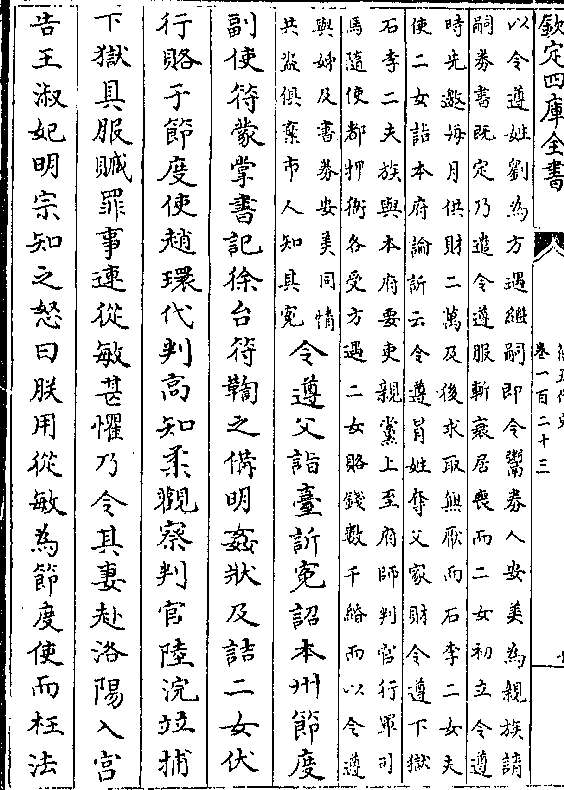 欽定四庫全書
卷一百二十三
以令遵姓劉為方遇繼嗣即令鬻券人安美為親族請
嗣券書既定乃遣令遵服斬衰居喪而二女初立令遵
時先邀每月供財二萬及後求取無厭而石李二女夫
使二女詣本府論訴云令遵冒姓奪父家財令遵下獄
石李二夫族與本府要吏親黨上至府帥判官行軍司
馬隨使都押衙各受方遇二女賂錢數千緡而以令遵
與姊及書券安美同情
共盜俱棄市人知其寃
令遵父詣臺訴寃詔本州節度
副使符蒙掌書記徐台符鞫之備明姦狀及詰二女伏
行賂于節度使趙環代判高知柔觀察判官陸浣並捕
下獄具服贓罪事連從敏甚懼乃令其妻赴洛陽入宮
告王淑妃明宗知之怒曰朕用從敏為節度使而枉法